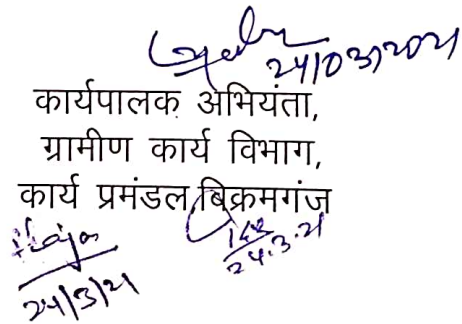 24/03/2021
कार्यपालक अभियंता,
ग्रामीण कार्य विभाग,
कार्य प्रमंडल,बिक्रमगंज
24.3.21
24/3/21